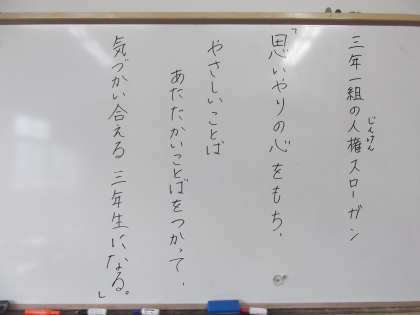 三年一組の人権スローガン
じんけん
「思いやりの心をもち、
やさしいことば
あたたかいことばをつかって、
気づかい合える三年生になる。」